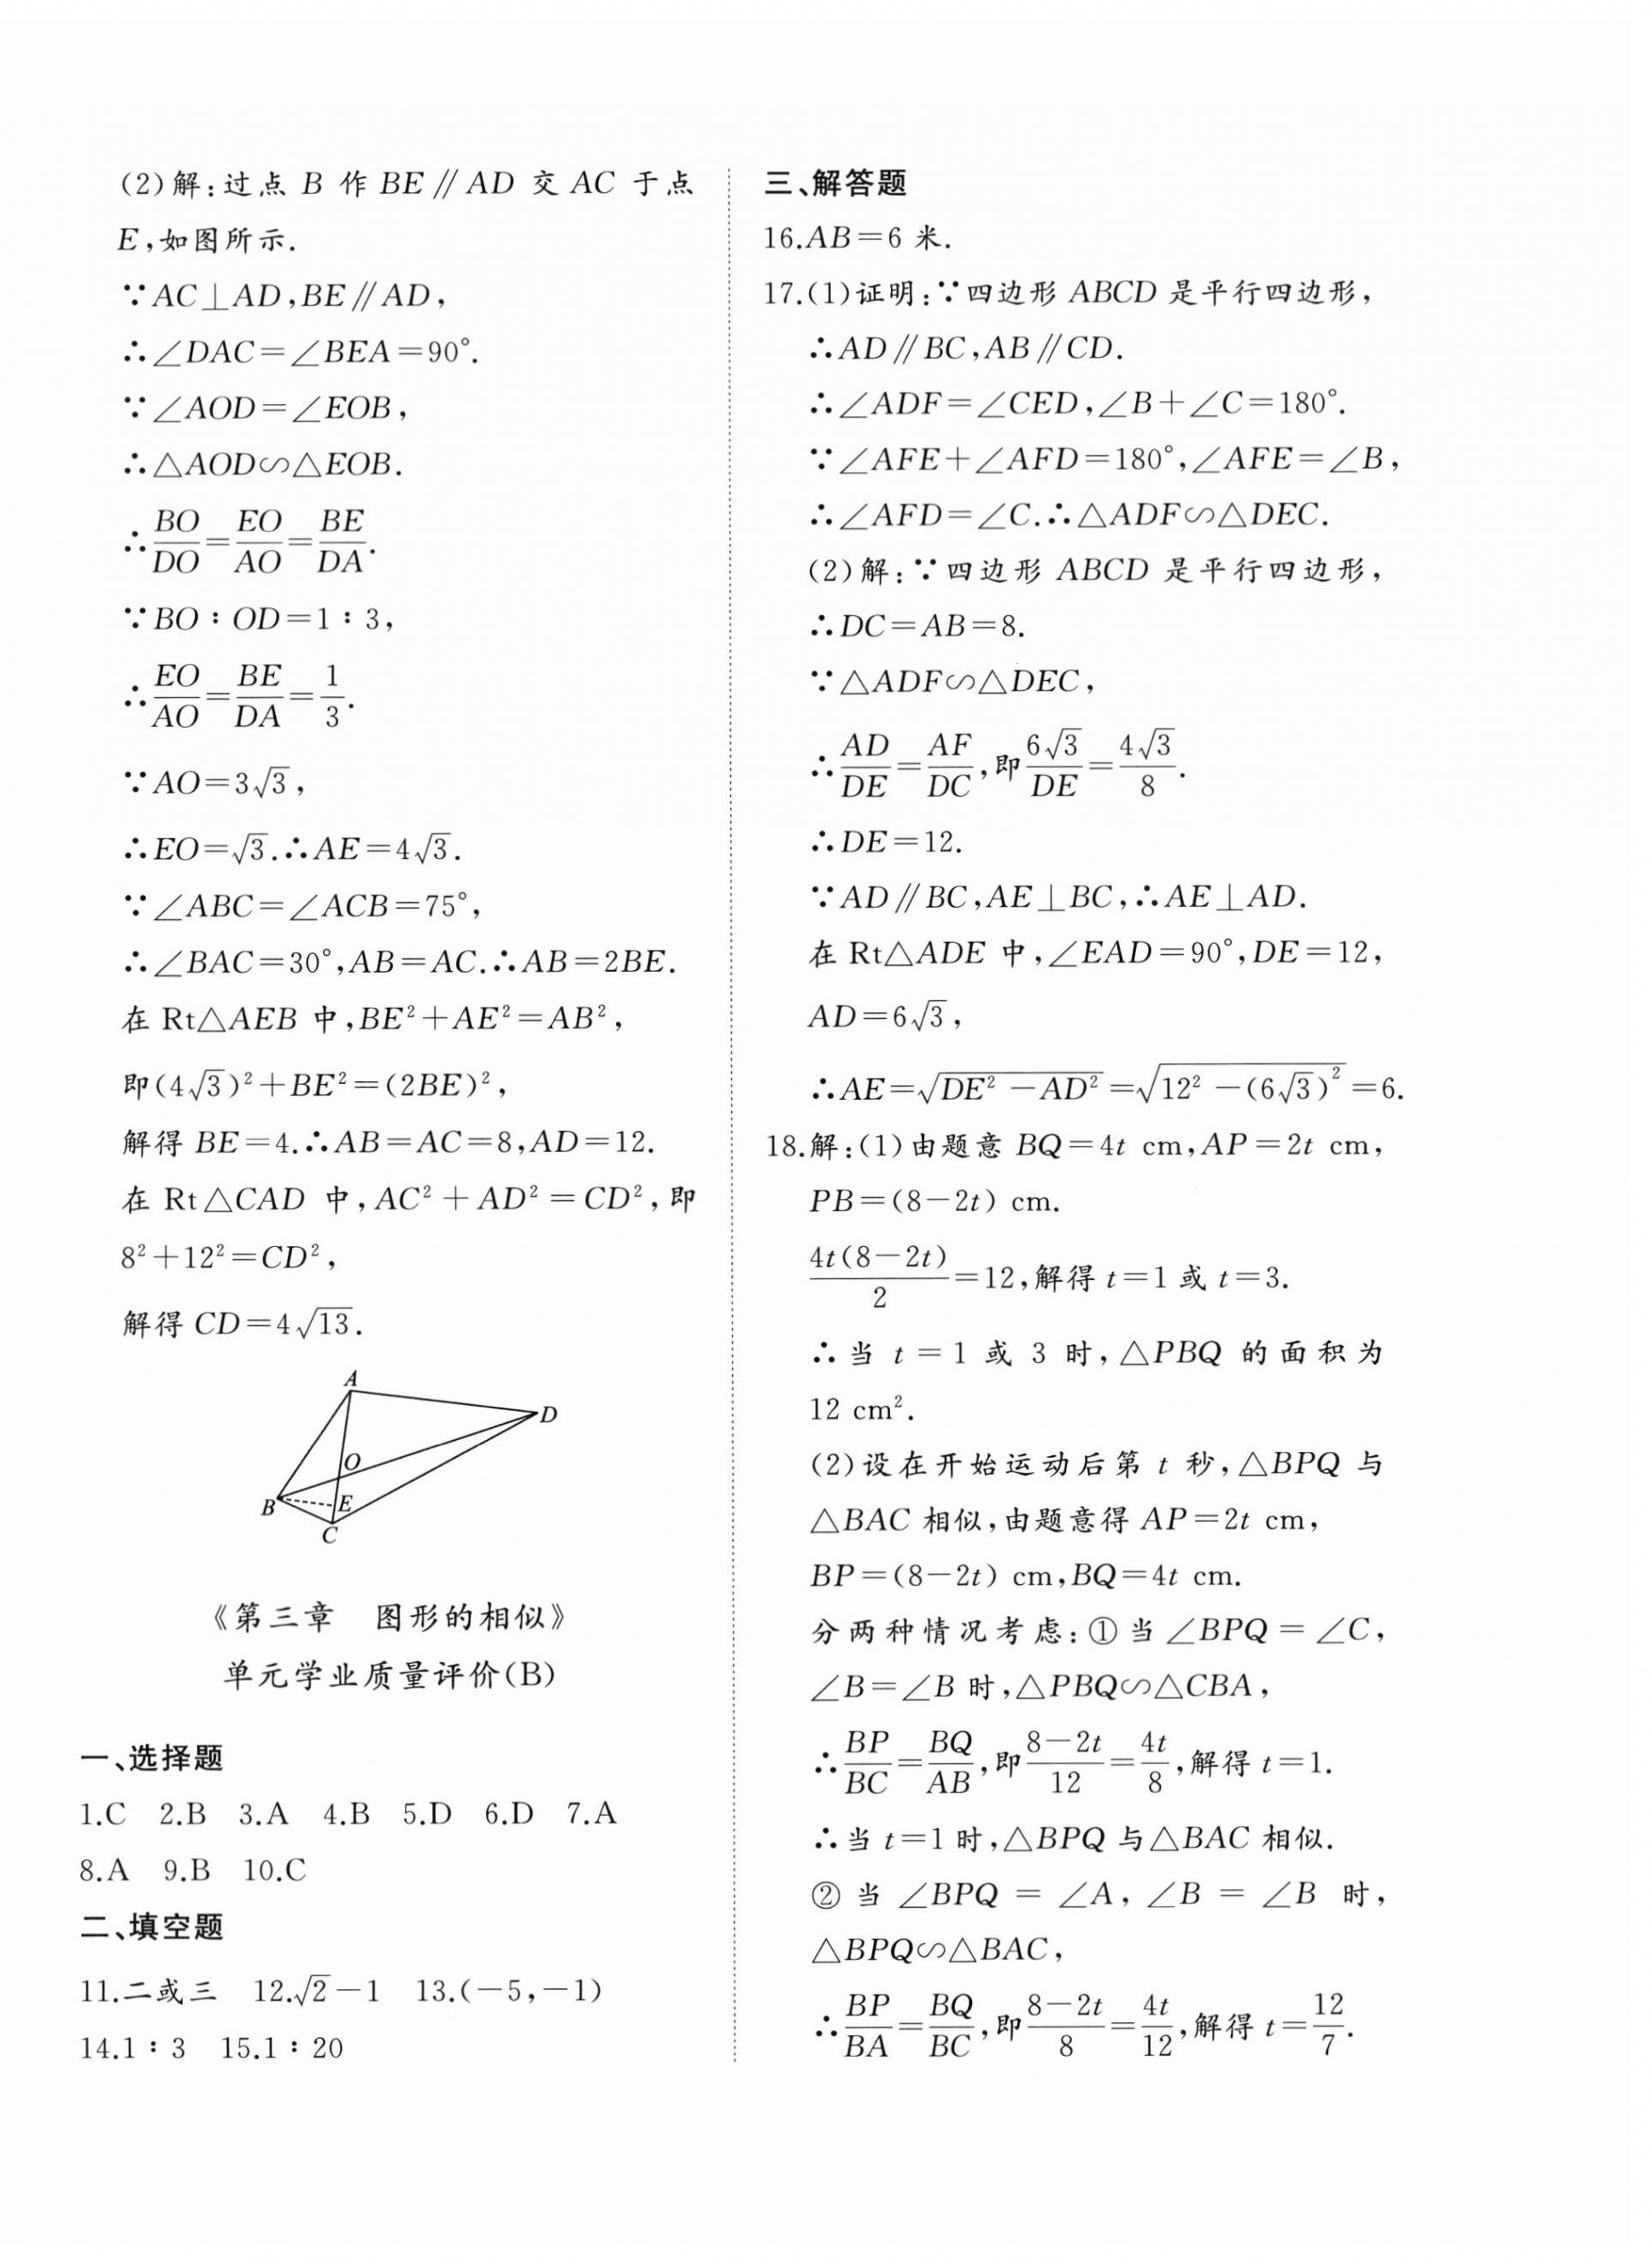 (2)解:过点 B 作 BE∥AD 交 AC 于点
E,如图所示.
∵AC⊥AD,BE∥AD,
∴∠DAC=∠BEA=90°.
∵∠AOD=∠EOB,
∴△AOD∽△EOB.
∴BO/DO=EO/AO=BE/DA.
∵BO∶OD=1∶3,
∴EO/AO=BE/DA=1/3.
∵AO=3√3,
∴EO=√3.∴AE=4√3.
∵∠ABC=∠ACB=75°,
∴∠BAC=30°,AB=AC.∴AB=2BE.
在 Rt△AEB 中,BE²+AE²=AB²,
即(4√3)²+BE²=(2BE)²,
解得 BE=4.∴AB=AC=8,AD=12.
在 Rt△CAD 中,AC²+AD²=CD²,即
8²+12²=CD²,
解得 CD=4√13.
A
D
O
B
E
C
《第三章 图形的相似》
单元学业质量评价(B)
一、选择题
1.C 2.B 3.A 4.B 5.D 6.D 7.A
8.A 9.B 10.C
二、填空题
11.二或三 12.√2-1 13.(-5,-1)
14.1∶3 15.1∶20
三、解答题
16.AB=6 米.
17.(1)证明:∵四边形 ABCD 是平行四边形,
∴AD∥BC,AB∥CD.
∴∠ADF=∠CED,∠B+∠C=180°.
∵∠AFE+∠AFD=180°,∠AFE=∠B,
∴∠AFD=∠C.∴△ADF∽△DEC.
(2)解:∵四边形 ABCD 是平行四边形,
∴DC=AB=8.
∵△ADF∽△DEC,
∴AD/DE=AF/DC,即6√3/DE=4√3/8.
∴DE=12.
∵AD∥BC,AE⊥BC,∴AE⊥AD.
在 Rt△ADE 中,∠EAD=90°,DE=12,
AD=6√3,
∴AE=√(DE²-AD²)=√(12²-(6√3)²)=6.
18.解:(1)由题意 BQ=4t cm,AP=2t cm,
PB=(8-2t) cm.
4t(8-2t)/2=12,解得 t=1 或 t=3.
∴当 t=1 或 3 时,△PBQ 的面积为
12 cm².
(2)设在开始运动后第 t 秒,△BPQ 与
△BAC 相似,由题意得 AP=2t cm,
BP=(8-2t) cm,BQ=4t cm.
分两种情况考虑:①当∠BPQ=∠C,
∠B=∠B 时,△PBQ∽△CBA,
∴BP/BC=BQ/AB,即(8-2t)/12=4t/8,解得 t=1.
∴当 t=1 时,△BPQ 与△BAC 相似.
②当∠BPQ=∠A,∠B=∠B 时,
△BPQ∽△BAC,
∴BP/BA=BQ/BC,即(8-2t)/8=4t/12,解得 t=12/7.